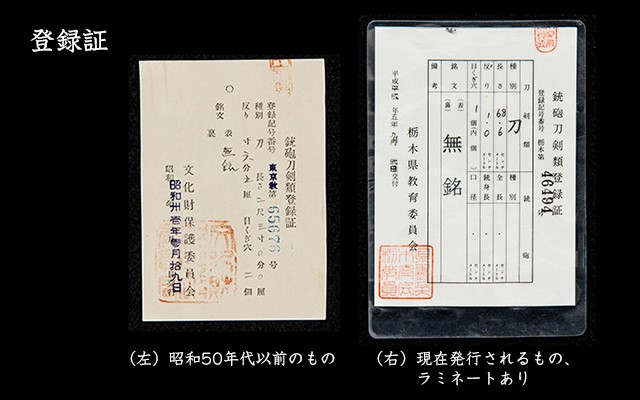 登録証
銃砲刀剣類登録証
登録記号番号 東京教第 65676 号
種別 刀 長さ 二尺三寸〇分〇厘
反り 寸 分 厘 目くぎ穴 二個
銘文 表 無銘
裏
文化財保護委員会
昭和卅壱年參月拾九日
銃砲刀剣類登録証
登録記号番号 栃木第 46494
刀剣類 銃砲
種別 刀 種別
長さ 68.6 全長
反り 1.0 銃身長
目くぎ穴 1個(内 個) 口径
銘文 (表) 無銘
(裏)
備考
平成 年 月 日交付
栃木県教育委員会
(左)昭和50年代以前のもの
(右)現在発行されるもの、
ラミネートあり